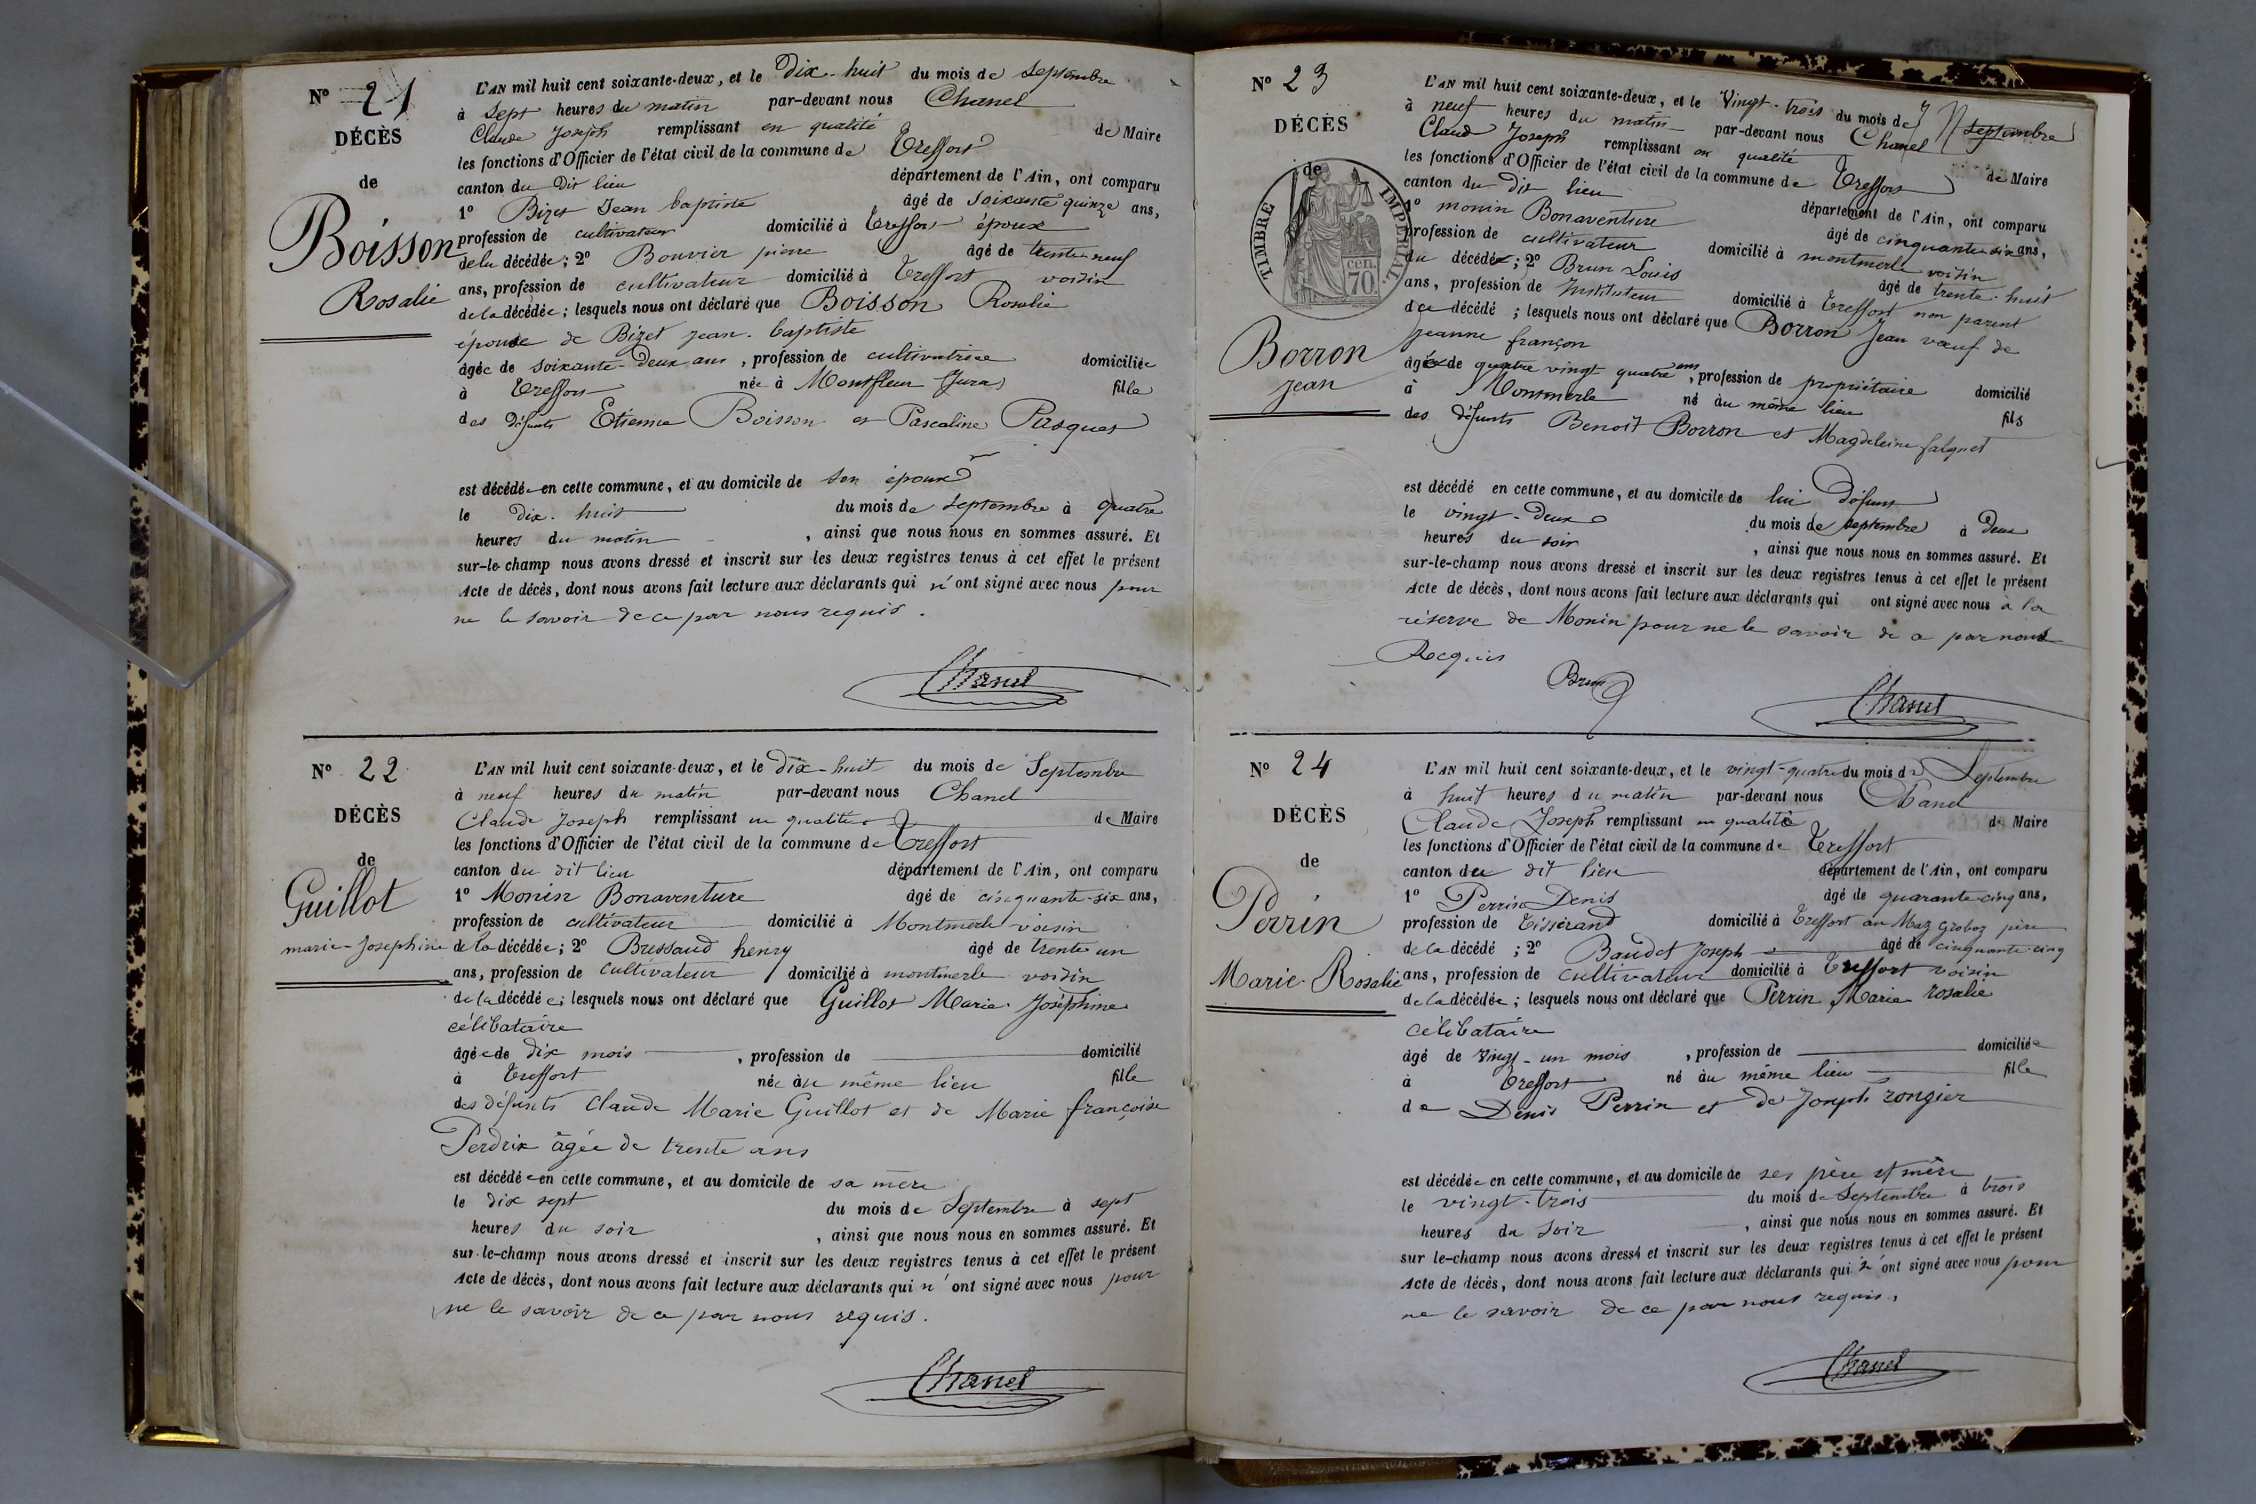 N° 21
DÉCÈS
de
Boisson
Rosalie
L'AN mil huit cent soixante-deux, et le Dix-huit du mois de Septembre
à Sept heures du matin par-devant nous Chanel
Claude Joseph remplissant en qualité de Maire
les fonctions d'Officier de l'état civil de la commune de Treffort
canton du Dit lieu département de l'Ain, ont comparu
1° Bizet Jean baptiste âgé de Soixante quinze ans,
profession de cultivateur domicilié à Treffort époux
de la décédée; 2° Bouvier pierre âgé de trente neuf
ans, profession de cultivateur domicilié à Treffort voisin
de la décédée; lesquels nous ont déclaré que Boisson Rosalie
épouse de Bizet jean-baptiste
âgée de soixante-deux ans, profession de cultivatrice domiciliée
à Treffort née à Montfleur (Jura) fille
des Défunts Etienne Boisson et Pascaline Pasquet
est décédée en cette commune, et au domicile de son époux
le dix-huit du mois de Septembre à quatre
heures du matin, ainsi que nous nous en sommes assuré. Et
sur-le-champ nous avons dressé et inscrit sur les deux registres tenus à cet effet le présent
Acte de décès, dont nous avons fait lecture aux déclarants qui n'ont signé avec nous pour
ne le savoir de ce par nous requis.
Chanel
N° 22
DÉCÈS
de
Guillot
marie-Josephine
L'AN mil huit cent soixante-deux, et le Dix-huit du mois de Septembre
à neuf heures du matin par-devant nous Chanel
Claude Joseph remplissant en qualité de Maire
les fonctions d'Officier de l'état civil de la commune de Treffort
canton du dit lieu département de l'Ain, ont comparu
1° Monin Bonaventure âgé de cinquante-six ans,
profession de cultivateur domicilié à Montmerle voisin
de la décédée; 2° Bressaud henry âgé de trente un
ans, profession de cultivateur domicilié à montmerle voisin
de la décédée; lesquels nous ont déclaré que Guillot Marie-Joséphine
célibataire
âgée de dix mois, profession de domicilié
à Treffort née au même lieu fille
des défunts Claude Marie Guillot et de Marie françoise
Perdrix âgée de trente ans
est décédée en cette commune, et au domicile de sa mère
le dix sept du mois de Septembre à sept
heures du soir, ainsi que nous nous en sommes assuré. Et
sur-le-champ nous avons dressé et inscrit sur les deux registres tenus à cet effet le présent
Acte de décès, dont nous avons fait lecture aux déclarants qui n'ont signé avec nous pour
ne le savoir de ce par nous requis.
Chanel
N° 23
DÉCÈS
de
TIMBRE IMPERIAL
70 cen.
Borron
jean
L'AN mil huit cent soixante-deux, et le Vingt-trois du mois de Septembre
à neuf heures du matin par-devant nous Chanel
Claud Joseph remplissant en qualité de Maire
les fonctions d'Officier de l'état civil de la commune de Treffort
canton du Dit lieu département de l'Ain, ont comparu
1° monin Bonaventure âgé de cinquante-six ans,
profession de cultivateur domicilié à montmerle voisin
du décédé; 2° Brun Louis âgé de trente-huit
ans, profession de Instituteur domicilié à Treffort non parent
de ce décédé; lesquels nous ont déclaré que Borron Jean vœuf de
jeanne françon
âgé de quatre vingt quatre ans, profession de propriétaire domicilié
à Montmerle né au même lieu fils
des défunts Benoît Borron et Magdeleine falquet
est décédé en cette commune, et au domicile de lui Défunt
le vingt-deux du mois de septembre à Deux
heures du soir, ainsi que nous nous en sommes assuré. Et
sur-le-champ nous avons dressé et inscrit sur les deux registres tenus à cet effet le présent
Acte de décès, dont nous avons fait lecture aux déclarants qui ont signé avec nous à la
réserve de Monin pour ne le savoir de ce par nous
Requis
Brun
Chanel
N° 24
DÉCÈS
de
Perrin
Marie-Rosalie
L'AN mil huit cent soixante-deux, et le vingt-quatre du mois de Septembre
à huit heures du matin par-devant nous Chanel
Claude Joseph remplissant en qualité de Maire
les fonctions d'Officier de l'état civil de la commune de Treffort
canton du dit lieu département de l'Ain, ont comparu
1° Perrin Denis âgé de quarante-cinq ans,
profession de Tisserand domicilié à Treffort au Maz Groboz père
de la décédé; 2° Baudet Joseph âgé de cinquante-cinq
ans, profession de cultivateur domicilié à Treffort voisin
de la décédée; lesquels nous ont déclaré que Perrin Marie rosalie
célibataire
âgé de vingt-un mois, profession de domiciliée
à Treffort né au même lieu fille
de Denis Perrin et de Joseph rongier
est décédée en cette commune, et au domicile de ses père et mère
le vingt-trois du mois de Septembre à trois
heures du Soir, ainsi que nous nous en sommes assuré. Et
sur le-champ nous avons dressé et inscrit sur les deux registres tenus à cet effet le présent
Acte de décès, dont nous avons fait lecture aux déclarants qui n'ont signé avec nous pour
ne le savoir de ce par nous requis.
Chanel